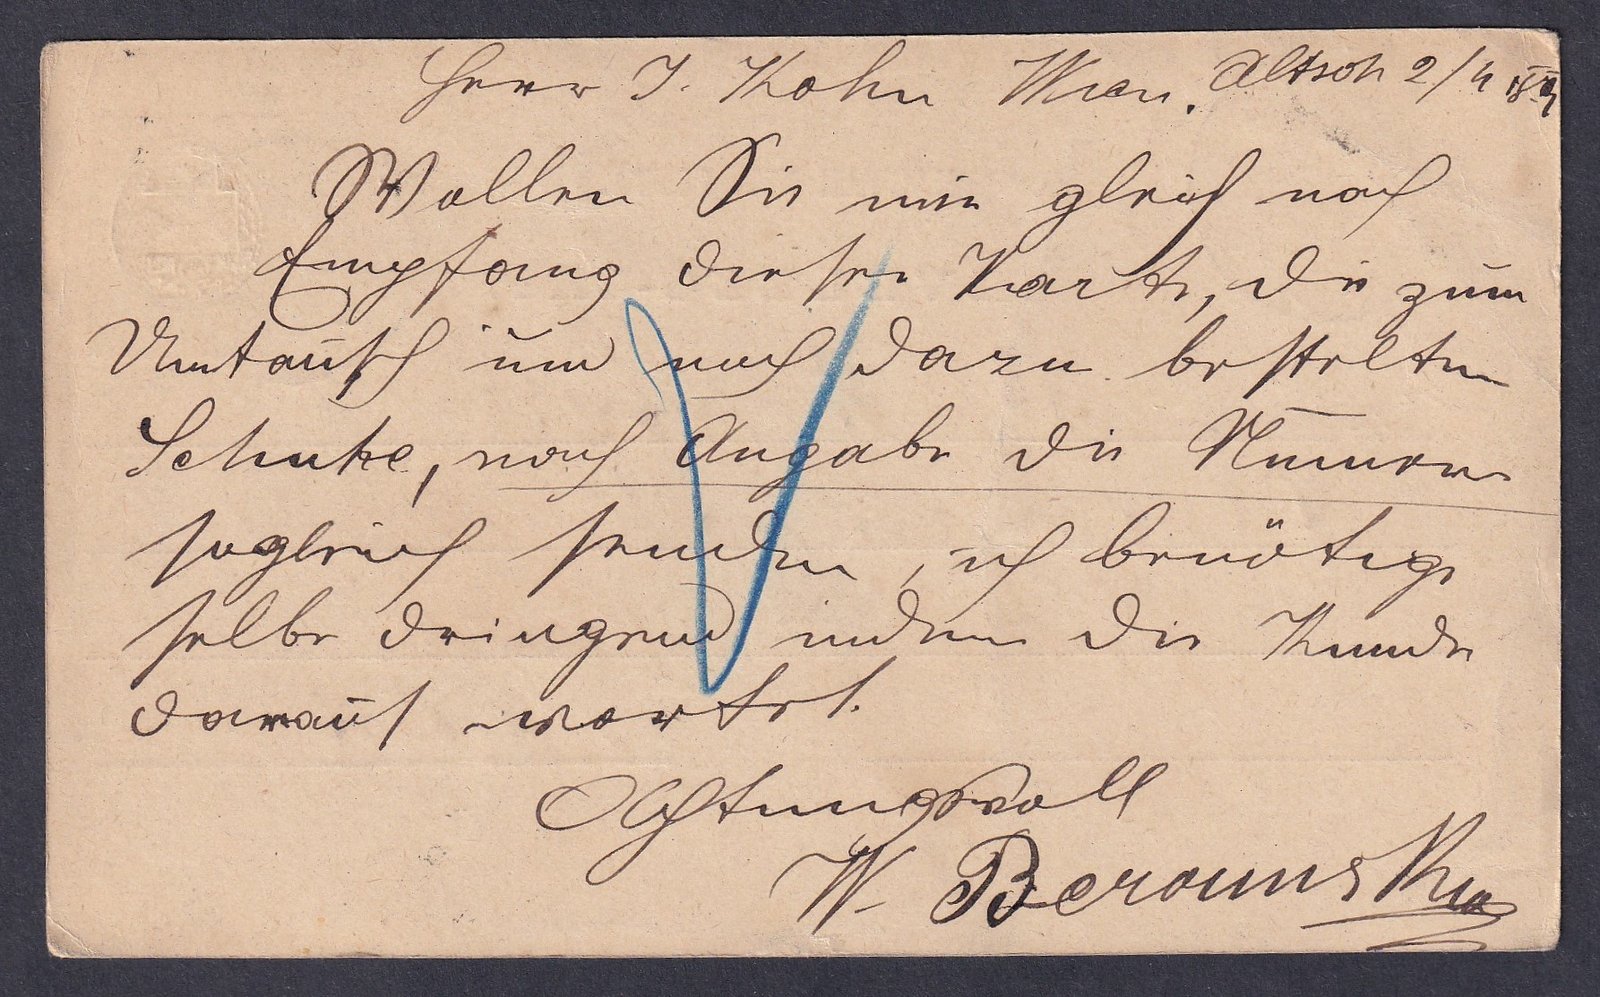 Herr J. Kohn Wien. Altsoh 2/4
Wollen Sie mir gleich nach
Empfang dieser Karte, die zum
Umtausch und noch dazu bestelten
Schuhe, nach Angabe die Numern
sogleich senden, ich benötige
selbe dringend indem die Kunde
darauf wartet.
Achtungsvoll
W.